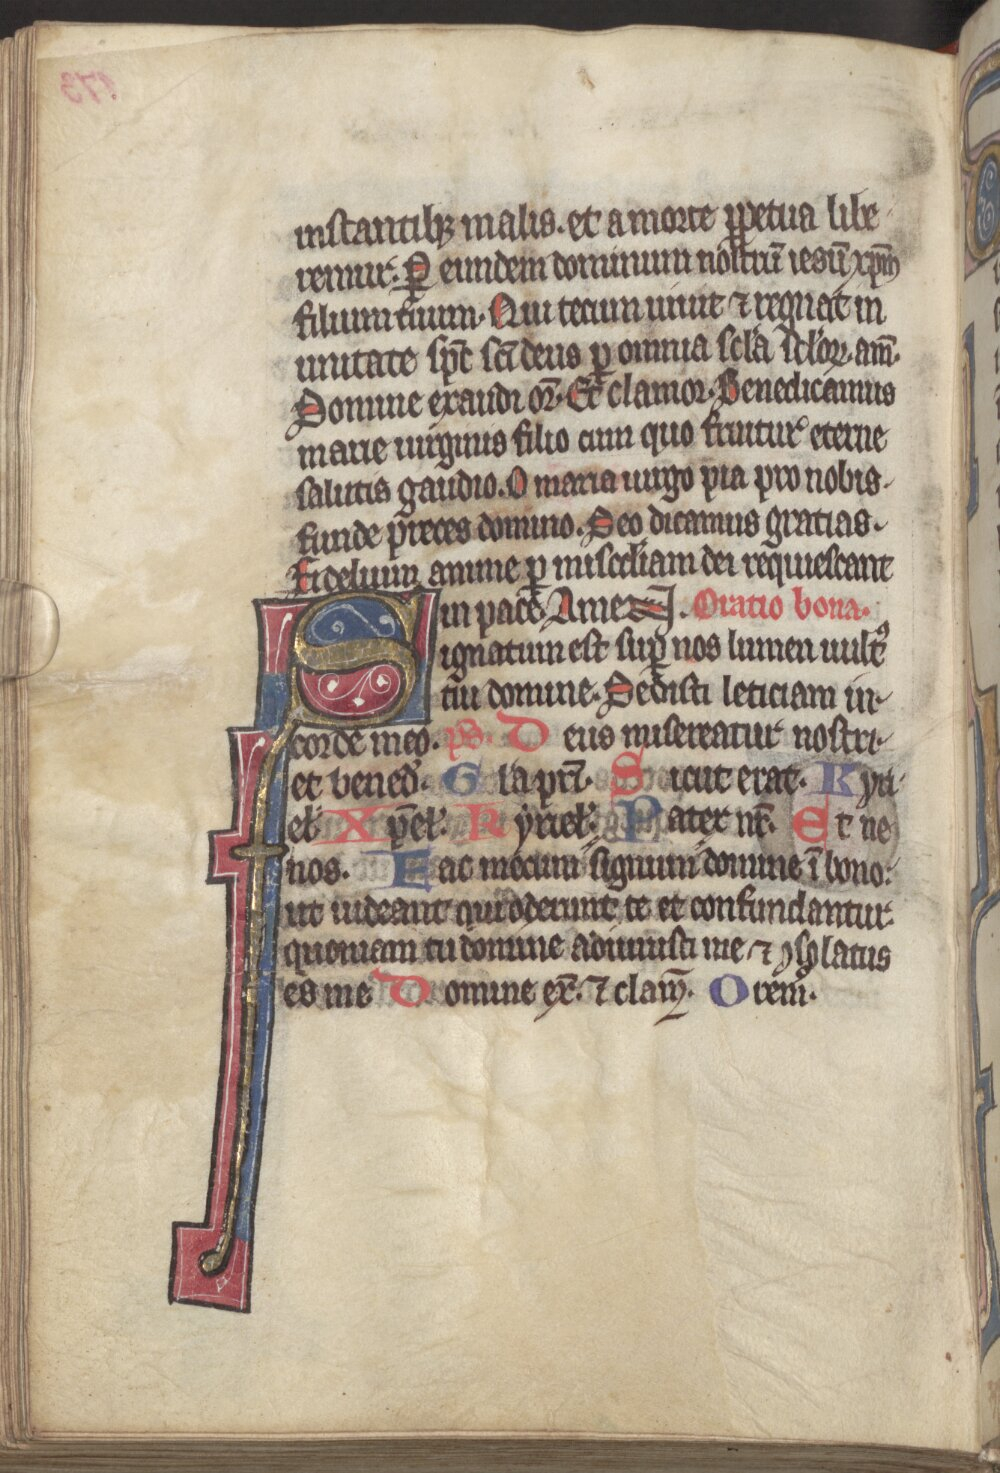 instantibꝫ malis. et a morte ꝑpetua libe
remur. P̲ eundem dominum nostrū iesū xp̄m
filium tuum. Qui tecum uiuit ⁊ regnat in
unitate sp̄c sc̄i deus ꝑ omnia scl̄a scl̄oꝝ. am̄.
Domine exaudi or̄. Et clamor. Benedicamus
marie uirginis filio cum quo fruitur eterne
salutis gaudio. O maria uirgo pia pro nobis
funde preces domino. Deo dicamus gratias.
Fidelium anime ꝑ misc̄diam dei requiescant
in pace. Amen. Oratio bona.
Signatum est suꝑ nos lumen uultꝰ
tui domine. Dedisti leticiam in
corde meo. ps. Deus misereatur nostri
et bened̄. Gl̄a pr̄i. Sicut erat. Kyri
el̄. Xp̄el̄. Kyriel̄. Pater nr̄. Et ne
nos. Fac mecum signum domine ī bono.
ut uideant qui oderunt te et confundantur
quoniam tu domine adiuuisti me ⁊ ꝯsolatus
es me Domine ex̄. ⁊ clam̄. Orem̄.